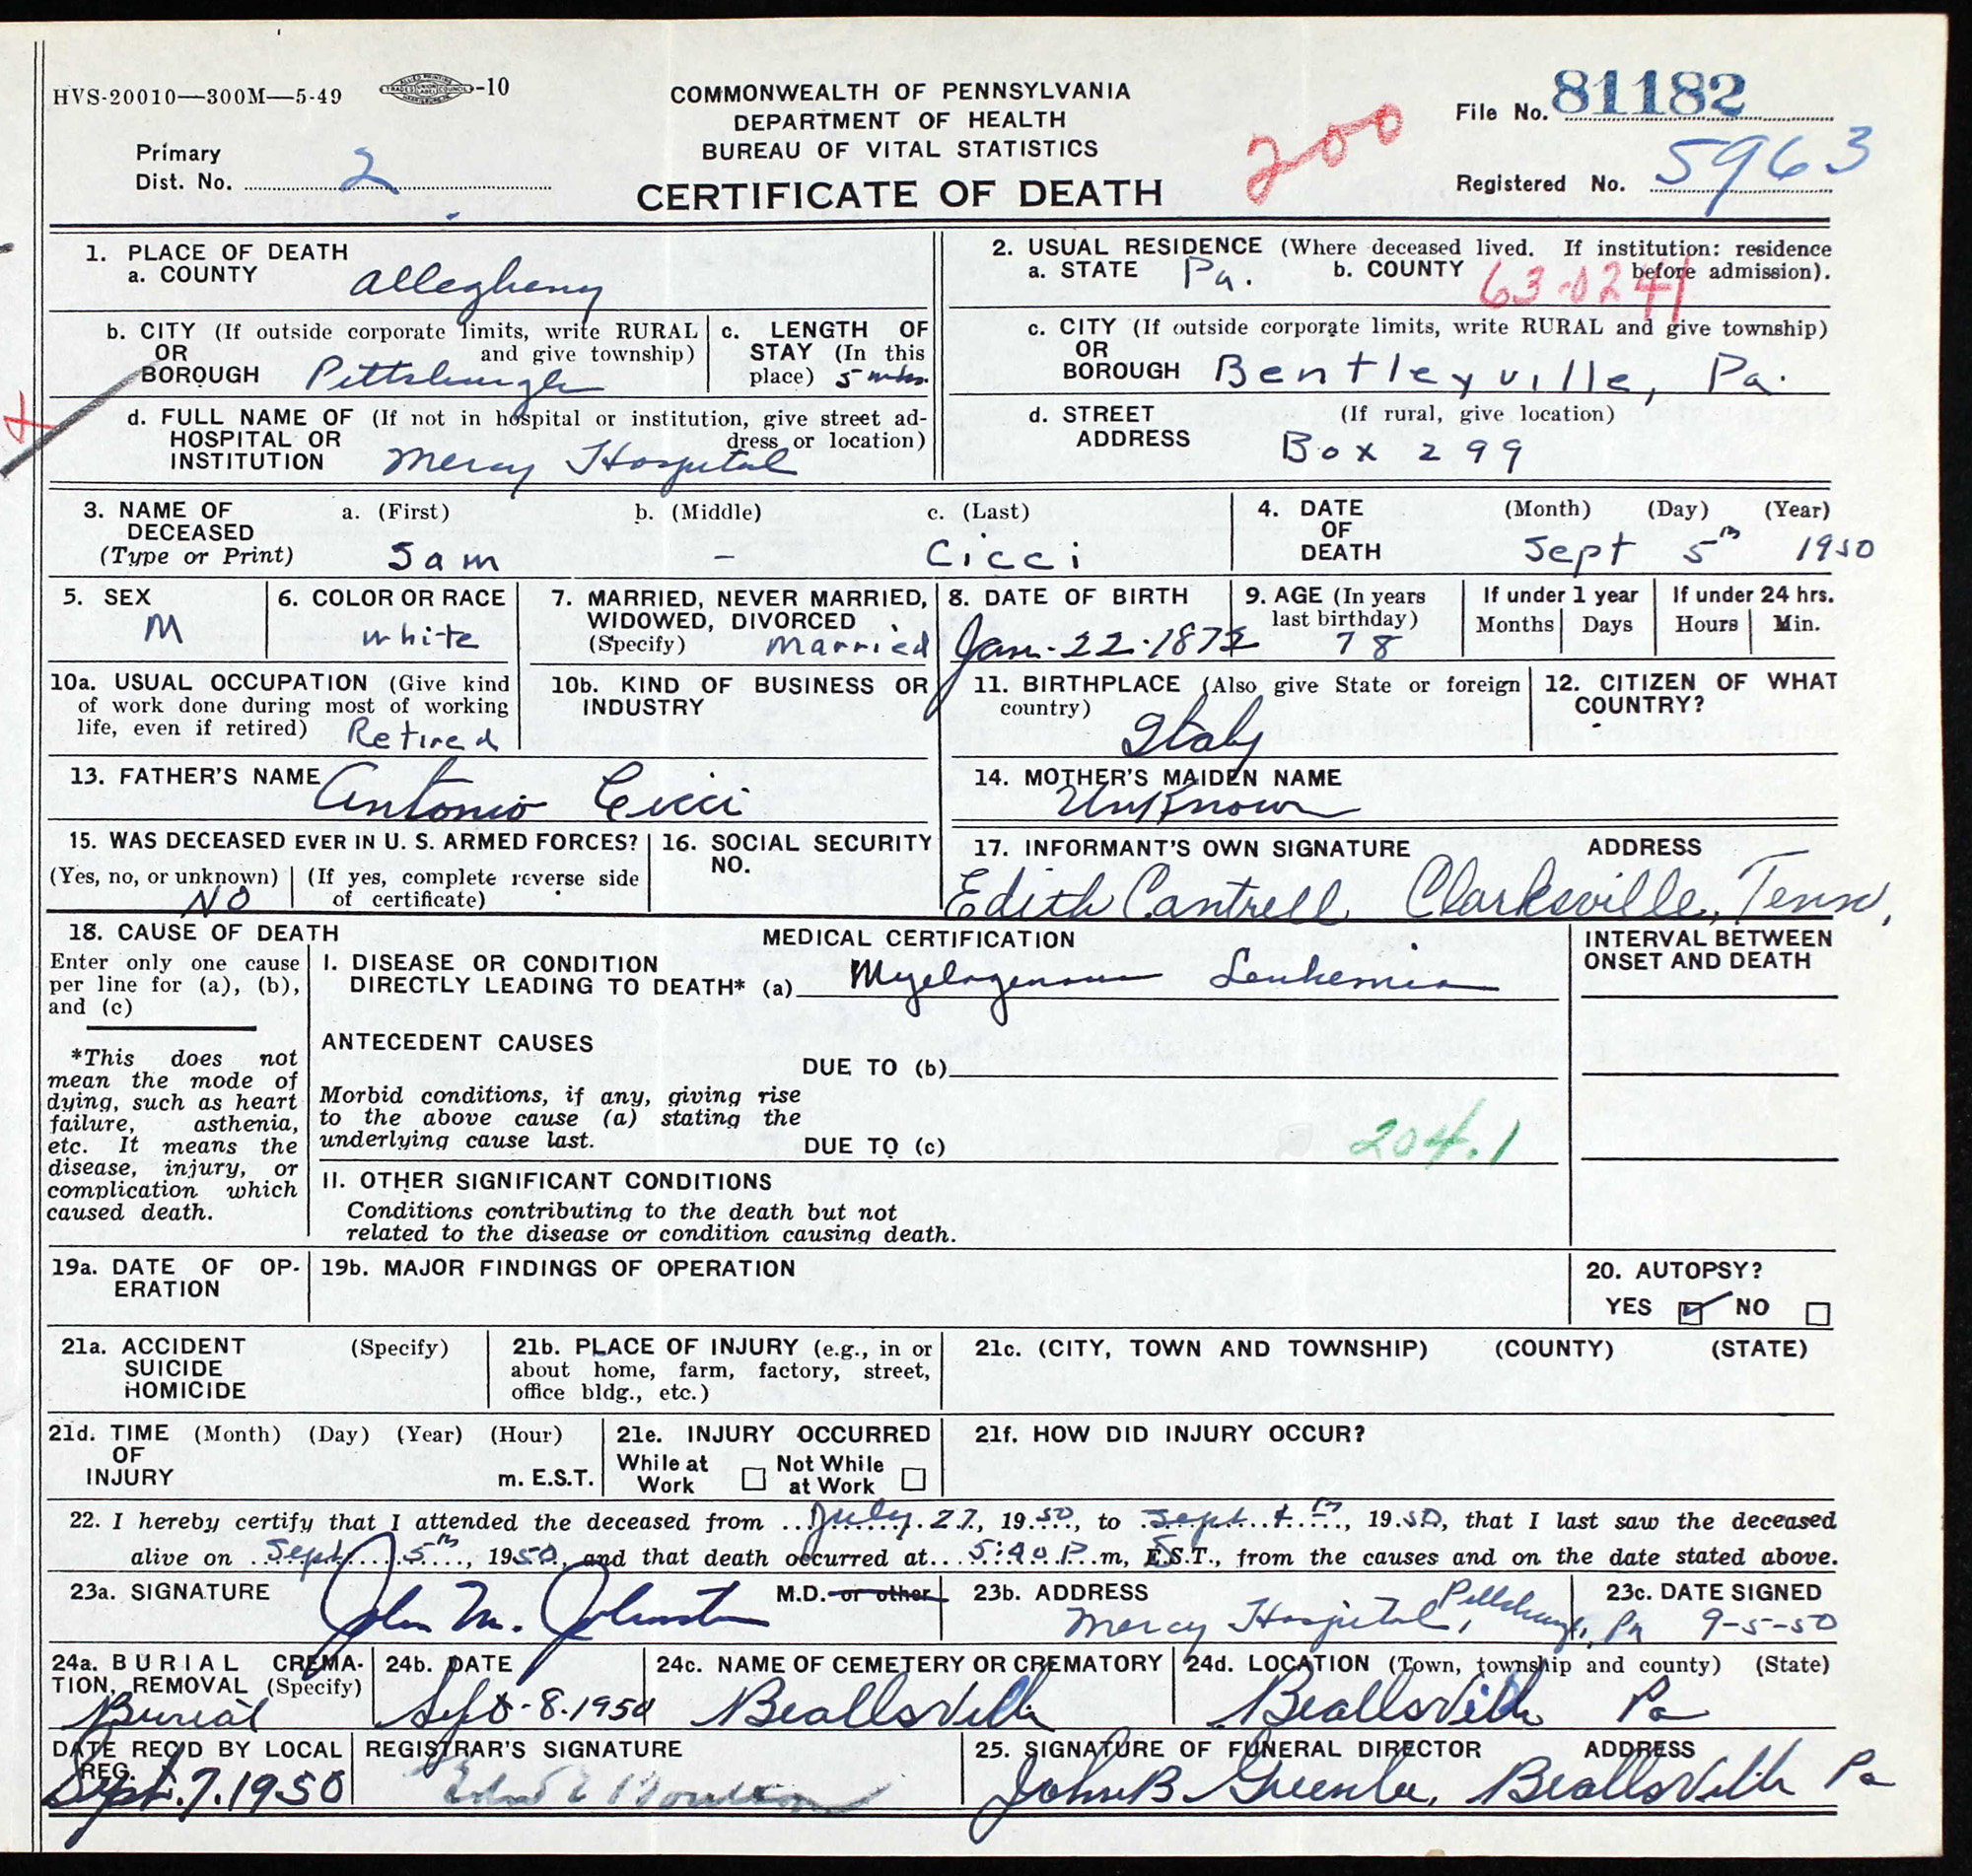 HVS-20010—300M—5-49 -10
COMMONWEALTH OF PENNSYLVANIA
DEPARTMENT OF HEALTH
BUREAU OF VITAL STATISTICS
CERTIFICATE OF DEATH
200
File No. 81182
Registered No. 5963
Primary
Dist. No. 2
1. PLACE OF DEATH
a. COUNTY Allegheny
b. CITY (If outside corporate limits, write RURAL
OR and give township)
BOROUGH Pittsburgh
c. LENGTH OF
STAY (In this
place) 5
d. FULL NAME OF (If not in hospital or institution, give street ad-
HOSPITAL OR dress or location)
INSTITUTION Mercy Hospital
2. USUAL RESIDENCE (Where deceased lived. If institution: residence
a. STATE Pa. b. COUNTY 63-0241 before admission).
c. CITY (If outside corporate limits, write RURAL and give township)
OR
BOROUGH Bentleyville, Pa.
d. STREET (If rural, give location)
ADDRESS Box 299
3. NAME OF a. (First) b. (Middle) c. (Last)
DECEASED
(Type or Print) Sam - Cicci
4. DATE (Month) (Day) (Year)
OF
DEATH Sept 5th 1950
5. SEX
M
6. COLOR OR RACE
white
7. MARRIED, NEVER MARRIED,
WIDOWED, DIVORCED
(Specify) Married
8. DATE OF BIRTH
Jan. 22. 1872
9. AGE (In years
last birthday)
78
If under 1 year
Months Days
If under 24 hrs.
Hours Min.
10a. USUAL OCCUPATION (Give kind
of work done during most of working
life, even if retired) Retired
10b. KIND OF BUSINESS OR
INDUSTRY
11. BIRTHPLACE (Also give State or foreign
country)
Italy
12. CITIZEN OF WHAT
COUNTRY?
13. FATHER'S NAME Antonio Cicci
14. MOTHER'S MAIDEN NAME
UnKnown
15. WAS DECEASED EVER IN U. S. ARMED FORCES?
(Yes, no, or unknown) (If yes, complete reverse side
NO of certificate)
16. SOCIAL SECURITY
NO.
17. INFORMANT'S OWN SIGNATURE ADDRESS
Edith Cantrell Clarksville, Tenn.
18. CAUSE OF DEATH
Enter only one cause
per line for (a), (b),
and (c)
*This does not
mean the mode of
dying, such as heart
failure, asthenia,
etc. It means the
disease, injury, or
complication which
caused death.
MEDICAL CERTIFICATION
I. DISEASE OR CONDITION
DIRECTLY LEADING TO DEATH* (a) Myelogenous Leukemia
ANTECEDENT CAUSES
DUE TO (b)
Morbid conditions, if any, giving rise
to the above cause (a) stating the
underlying cause last.
DUE TO (c) 204.1
II. OTHER SIGNIFICANT CONDITIONS
Conditions contributing to the death but not
related to the disease or condition causing death.
INTERVAL BETWEEN
ONSET AND DEATH
19a. DATE OF OP-
ERATION
19b. MAJOR FINDINGS OF OPERATION
20. AUTOPSY?
YES NO
21a. ACCIDENT (Specify)
SUICIDE
HOMICIDE
21b. PLACE OF INJURY (e.g., in or
about home, farm, factory, street,
office bldg., etc.)
21c. (CITY, TOWN AND TOWNSHIP) (COUNTY) (STATE)
21d. TIME (Month) (Day) (Year) (Hour)
OF
INJURY m. E.S.T.
21e. INJURY OCCURRED
While at Not While
Work at Work
21f. HOW DID INJURY OCCUR?
22. I hereby certify that I attended the deceased from July 27, 1950, to Sept 4th, 1950, that I last saw the deceased
alive on Sept 5th, 1950, and that death occurred at 5:40 P. m, E.S.T., from the causes and on the date stated above.
23a. SIGNATURE John M. Johnston M.D. or other
23b. ADDRESS
Mercy Hospital, Pittsburgh, Pa
23c. DATE SIGNED
9-5-50
24a. BURIAL CREMA-
TION, REMOVAL (Specify)
Burial
24b. DATE
Sept-8.1950
24c. NAME OF CEMETERY OR CREMATORY
Beallsville
24d. LOCATION (Town, township and county) (State)
Beallsville Pa
DATE REC'D BY LOCAL
REG.
Sept. 7. 1950
REGISTRAR'S SIGNATURE
25. SIGNATURE OF FUNERAL DIRECTOR ADDRESS
John B Greenlee, Beallsville Pa